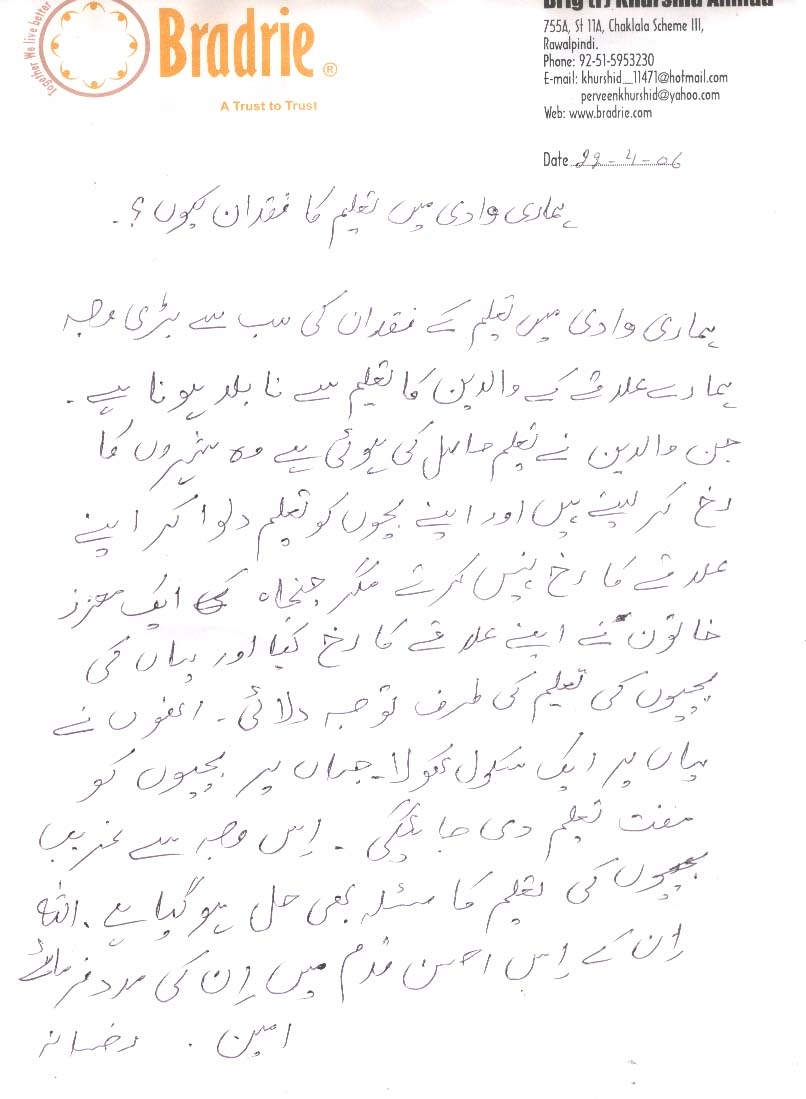 Together We live better
Bradrie ®
A Trust to Trust
Brig (r) Khurshid Ahmad
755A, St 11A, Chaklala Scheme III,
Rawalpindi.
Phone: 92-51-5953230
E-mail: khurshid_11471@hotmail.com
perveenkhurshid@yahoo.com
Web: www.bradrie.com
Date 29-4-06
ہماری وادی میں تعلیم کا فقدان کیوں؟۔
ہماری وادی میں تعلیم کے فقدان کی سب سے بڑی وجہ
ہمارے علاقے کے والدین کا تعلیم سے نا بلد ہونا ہے۔
جن والدین نے تعلیم حاصل کی ہوئی ہے وہ شہروں کا
رخ کر لیتے ہیں اور اپنے بچوں کو تعلیم دلوا کر اپنے
علاقے کا رخ نہیں کرتے مگر ایک معزز
خاتون نے اپنے علاقے کا رخ کیا اور یہاں کی
بچیوں کی تعلیم کی طرف توجہ دلائی۔ انھوں نے
یہاں پر ایک سکول کھولا۔ جہاں پر بچیوں کو
مفت تعلیم دی جائیگی۔ اِس وجہ سے غریب
بچیوں کی تعلیم کا مسئلہ بھی حل ہو گیا ہے۔ اللہ
اِن کے اِس احسن قدم میں اِن کی مدد فرمائے
امین۔ رخسانہ